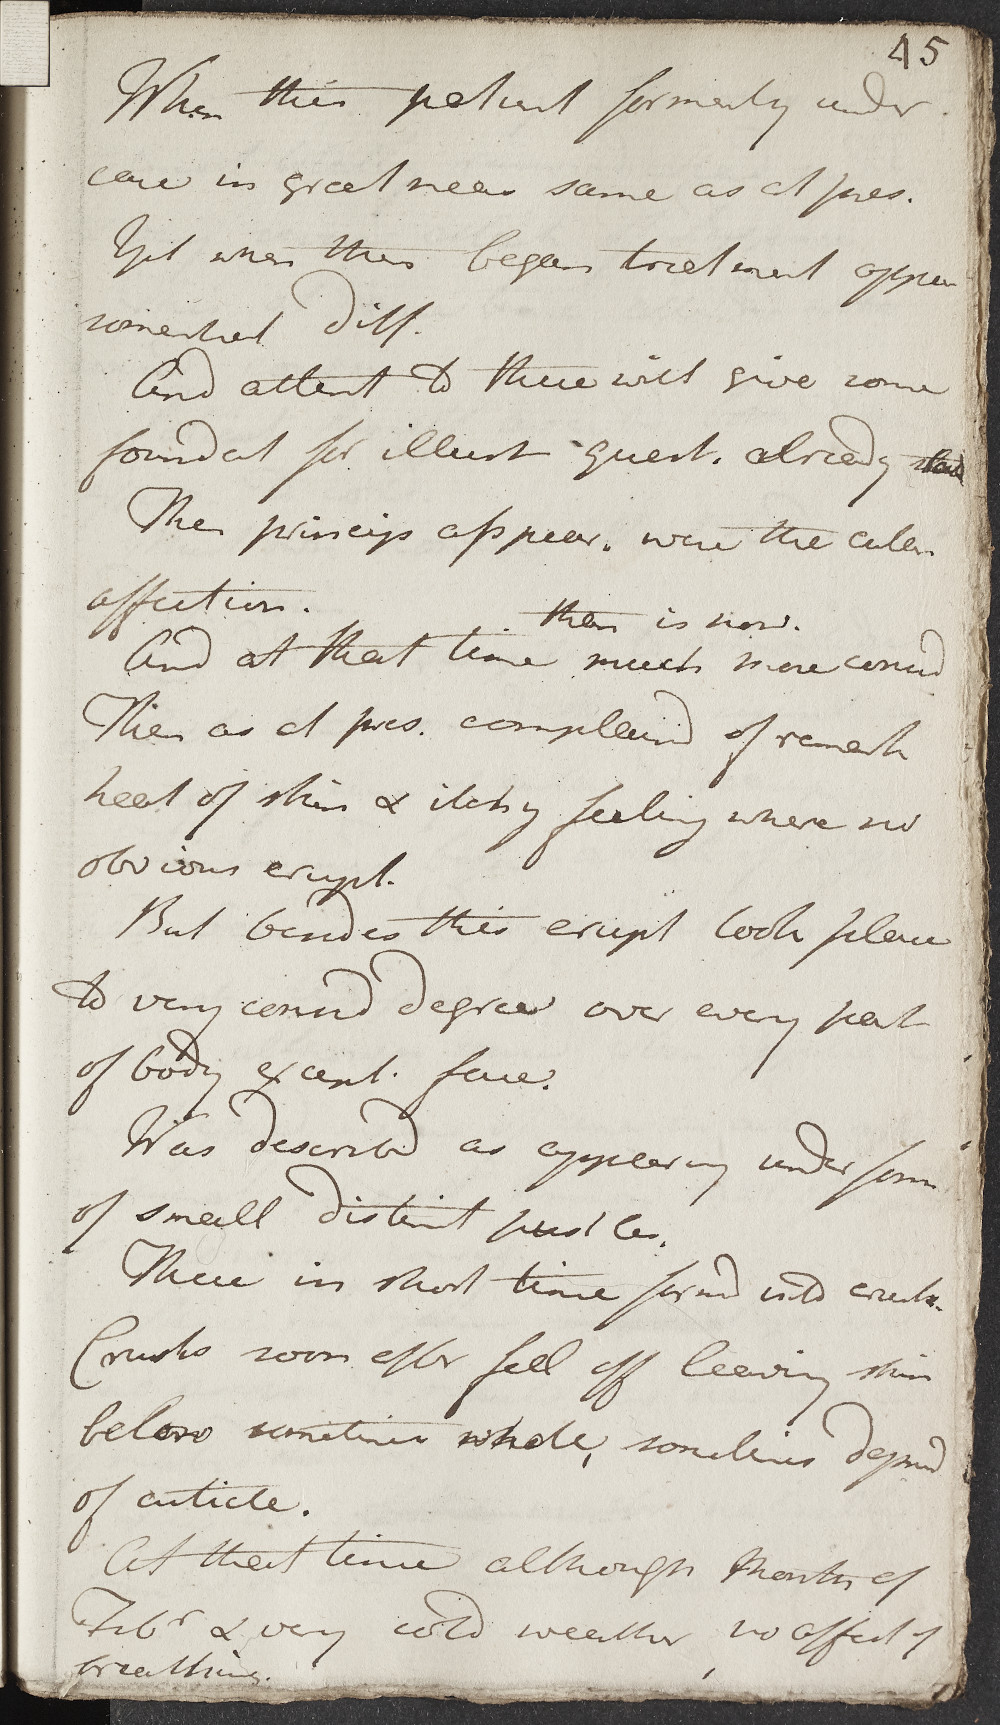 45
When this patient formerly under
care in great meas same as at pres.
Yet when then began treatment appear
somewhat diff.
And attent to these will give some
foundat for illust quest. already stated
Then princip appear. were the cutan
affection.
then is now.
And at that time much more consid
Then as at pres. complaind of remark
heat of skin & itchy feeling where no
obvious erupt.
But besides this erupt took place
to very consid degree over every part
of body except. face.
Was described as appearing under form
of small distinct pustles.
These in short time formd into crusts.
Crusts soon after fell off leaving skin
below sometimes whole, sometimes deprivd
of cuticle.
At that time although Month of
Febr & very cold weather, no affect of
breathing.